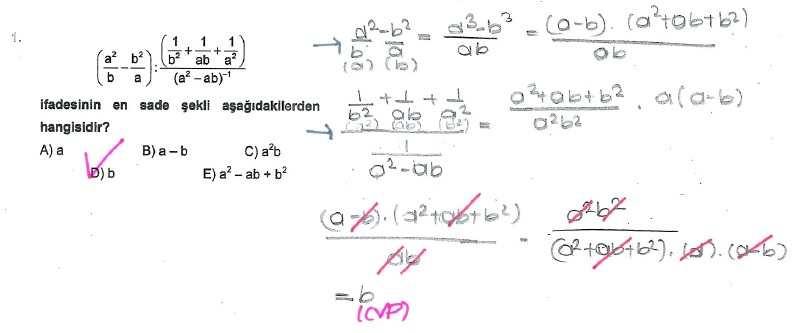 1.
(a²/b − b²/a) : (1/b² + 1/ab + 1/a²)/(a² − ab)⁻¹
ifadesinin en sade şekli aşağıdakilerden
hangisidir?
A) a B) a − b C) a²b
D) b E) a² − ab + b²
→ a²/b − b²/a = (a³ − b³)/ab = (a−b) . (a²+ab+b²)/ab
(a) (b)
→ (1/b² + 1/ab + 1/a²)/(1/(a² − ab)) = (a²+ab+b²)/a²b² . a(a−b)
(a²) (ab) (b²)
(a−b).(a²+ab+b²)/ab . a²b²/((a²+ab+b²).(a).(a−b))
= b
(CVP)